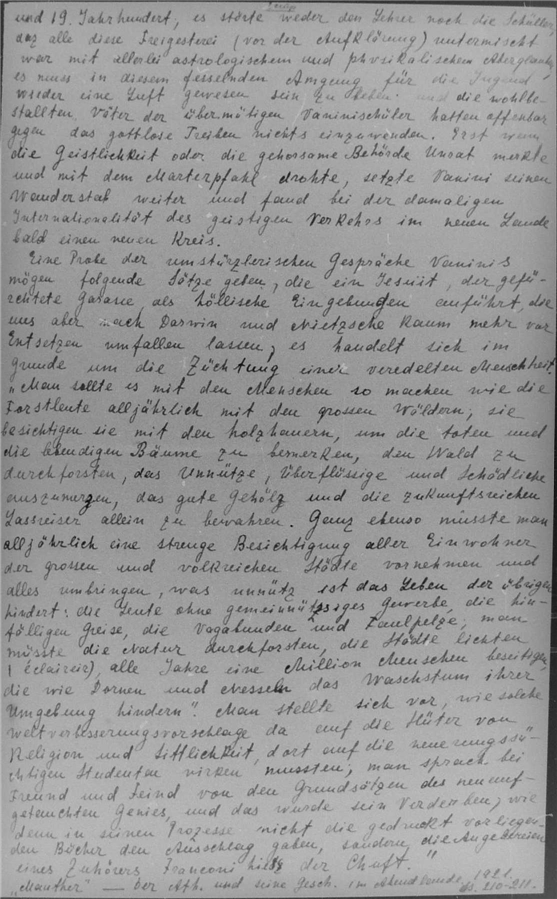 und 19. Jahrhundert, es störte weder den Lehrer noch die Schüller,
daz alle diese Freigesterei (vor der Aufklärung) untermischt
war mit allerlei astrologischem und physikalischem Aberglaube,
es muss in diesem fesselnden Umgang für die Jugend
wieder eine Luft gewesen sein zu leben: und die wohlbe-
stallten Väter der übermütigen Vaninischüler hatten offenbar
gegen das gottlose Treiben nichts einzuwenden. Erst wenn
die Geistlichkeit oder die gehorsame Behörde Unrat merkte
und mit dem Marterpfahl drohte, setzte Vanini seinen
Wanderstab weiter und fand bei der damaligen
Internationalität des geistigen Verkehrs im neuen Lande
bald einen neuen Kreis.
Eine Probe der umstürzlerischen Gespräche Vaninis
mögen folgende Sätze geben, die ein Jesuit, der gefü-
rchtete Garasse, als höllische Eingebungen anführt, die
uns aber nach Darwin und Nietzsche kaum mehr vor
Entsetzen umfallen lassen; es handelt sich im
Grunde um die Züchtung einer veredelten Menschheit.
"Man sollte es mit den Menschen so machen wie die
Forstleute alljährlich mit den grossen Wäldern; sie
besichtigen sie mit den Holzhauern, um die toten und
die lebendigen Bäume zu bemerken, den Wald zu
durchforsten, das Unnütze, Überflüssige und Schädliche
auszumerzen, das gute Gehölz und die zukunftsreichen
Lassreiser allein zu bewahren. Ganz ebenso müsste man
alljährlich eine strenge Besichtigung aller Einwohner
der grossen und volkreichen Städte vornehmen und
alles umbringen, was unnütz ist das Leben der übrigen
hindert: die Leute ohne gemeinnütziges Gewerbe, die hin-
fälligen Greise, die Vagabunden und Faulpelze; man
müsste die Natur durchforsten, die Städte lichten
(éclaircir), alle Jahre eine Million Menschen beseitigen,
die wie Dornen und Nesseln das Wachstum ihrer
Umgebung hindern". Man stellte sich vor, wie solche
Weltverbesserungsvorschläge da auf die Hüter von
Religion und Sittlichkeit, dort auf die neuerungssü-
chtigen Studenten wirken mussten; man sprach bei
Freund und Feind von den Grundsätzen des neu auf-
getauchten Genies, und das wurde sein Verderben, wie
denn in seinen Prozesse nicht die gedruckt vorliegen-
den Bücher den Ausschlag gaben, sondern die Angebereien
eines Zuhörers Franconi hiess der Chaft."
"Mauther" — Der Ath. und seine Gesch. im Abendlande, 1921.
ds. 210-211.